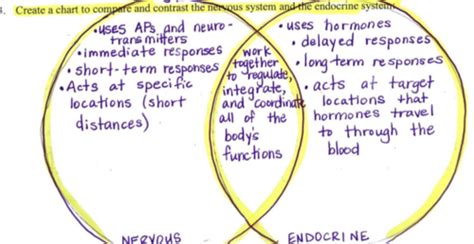 4. Create a chart to compare and contrast the nervous system and the endocrine system.
•uses APs and neuro-
transmitters
•immediate responses
•short-term responses
•Acts at specific
locations (short
distances)
work
together
to regulate,
integrate,
and coordinate
all of the
body's
functions
•uses hormones
•delayed responses
•long-term responses
•acts at target
locations that
hormones travel
to through the
blood
NERVOUS
ENDOCRINE